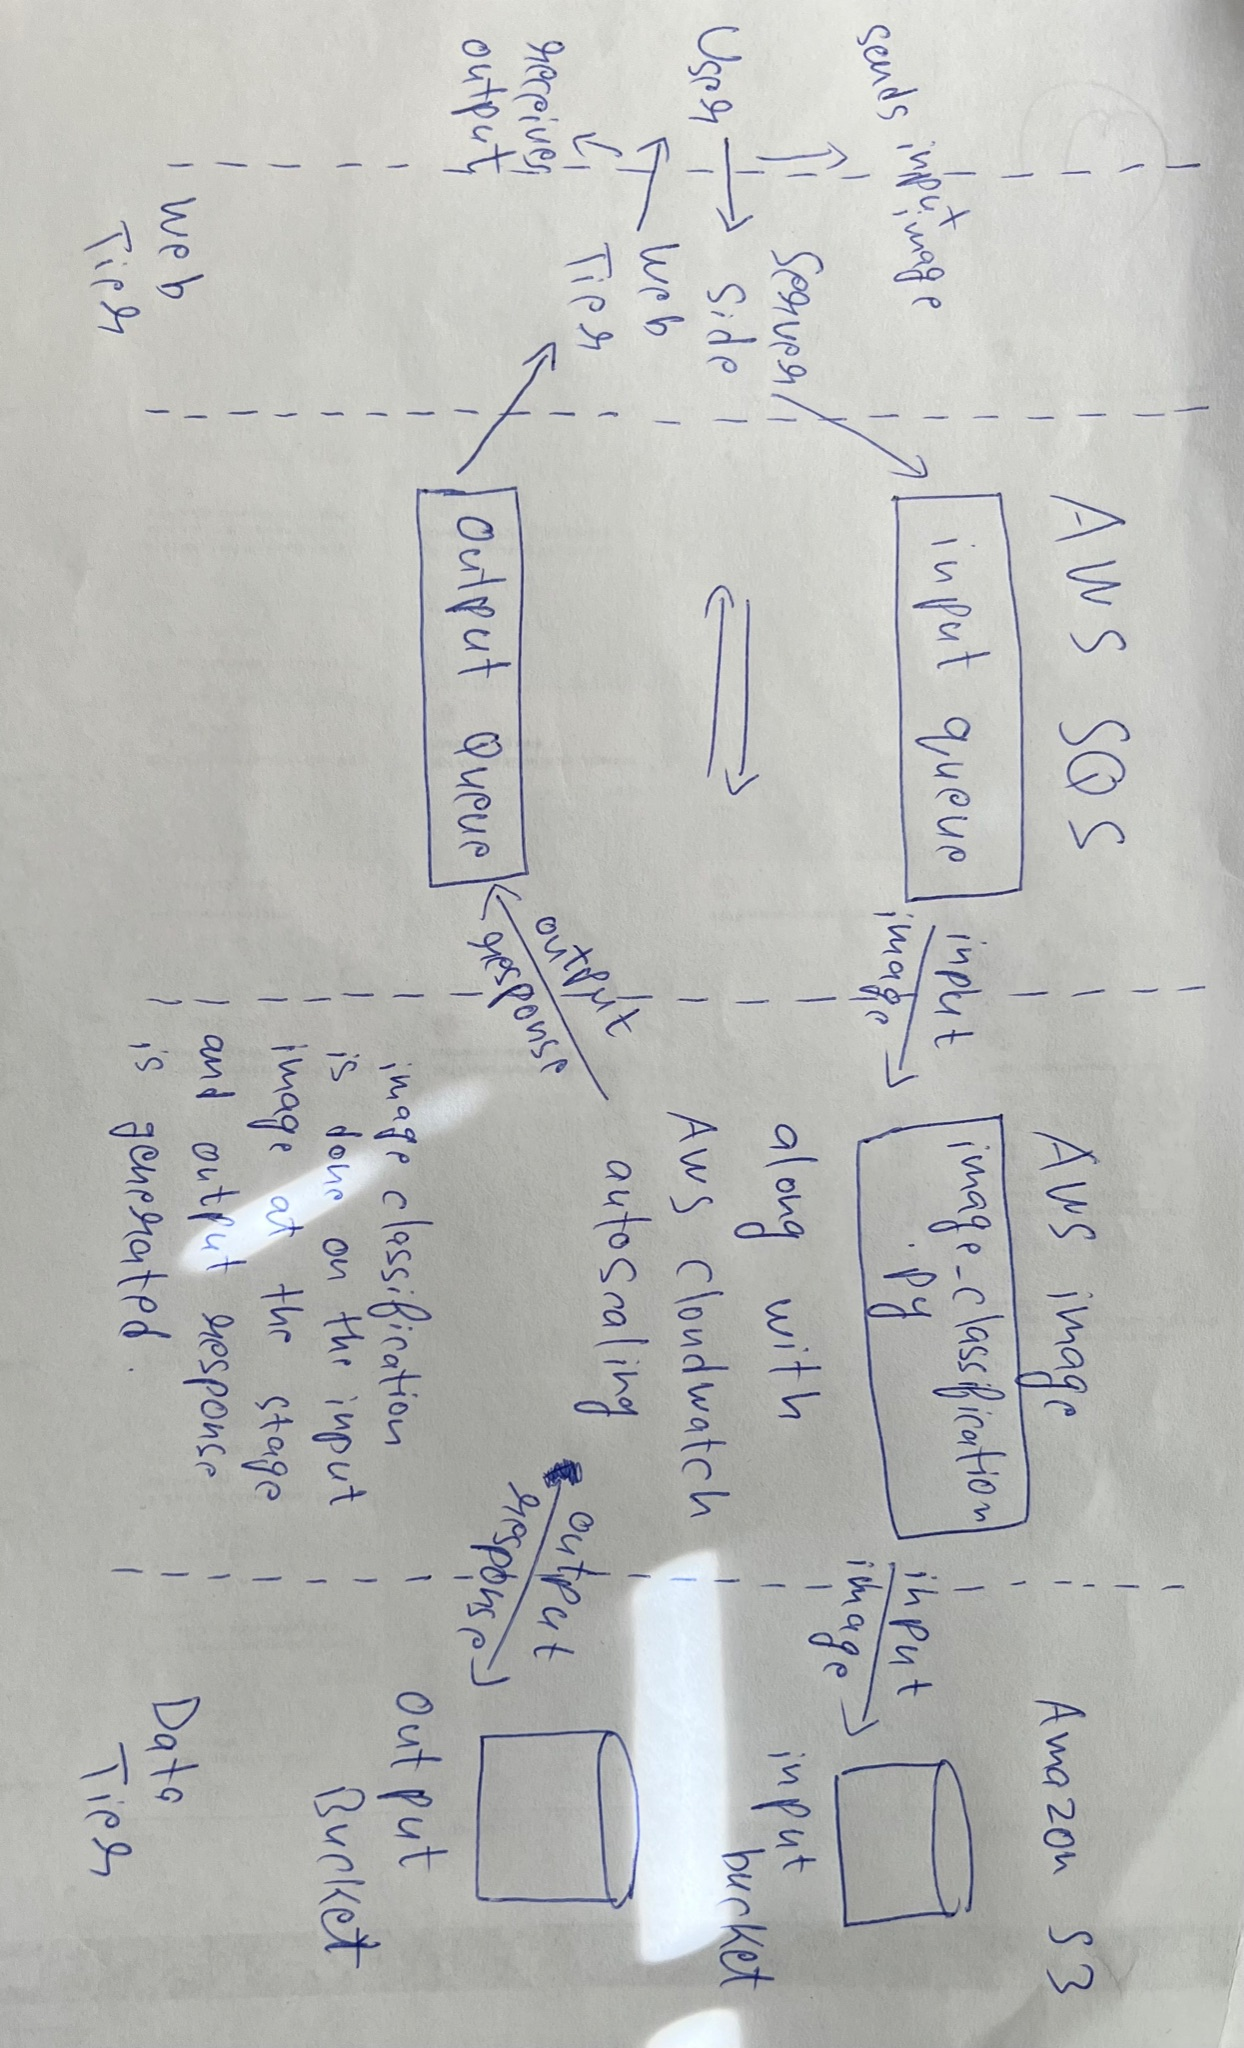 sends input image
User
receives
output
Server
Side
Web
Tier
Web
Tier
AWS SQS
input queue
Output Queue
input
image
output
response
AWS image
image_classification
.py
along with
AWS cloudwatch
autoscaling
image classification
is done on the input
image at the stage
and output response
is generated.
input
image
output
response
Amazon S3
input
bucket
Output
Bucket
Data
Tier